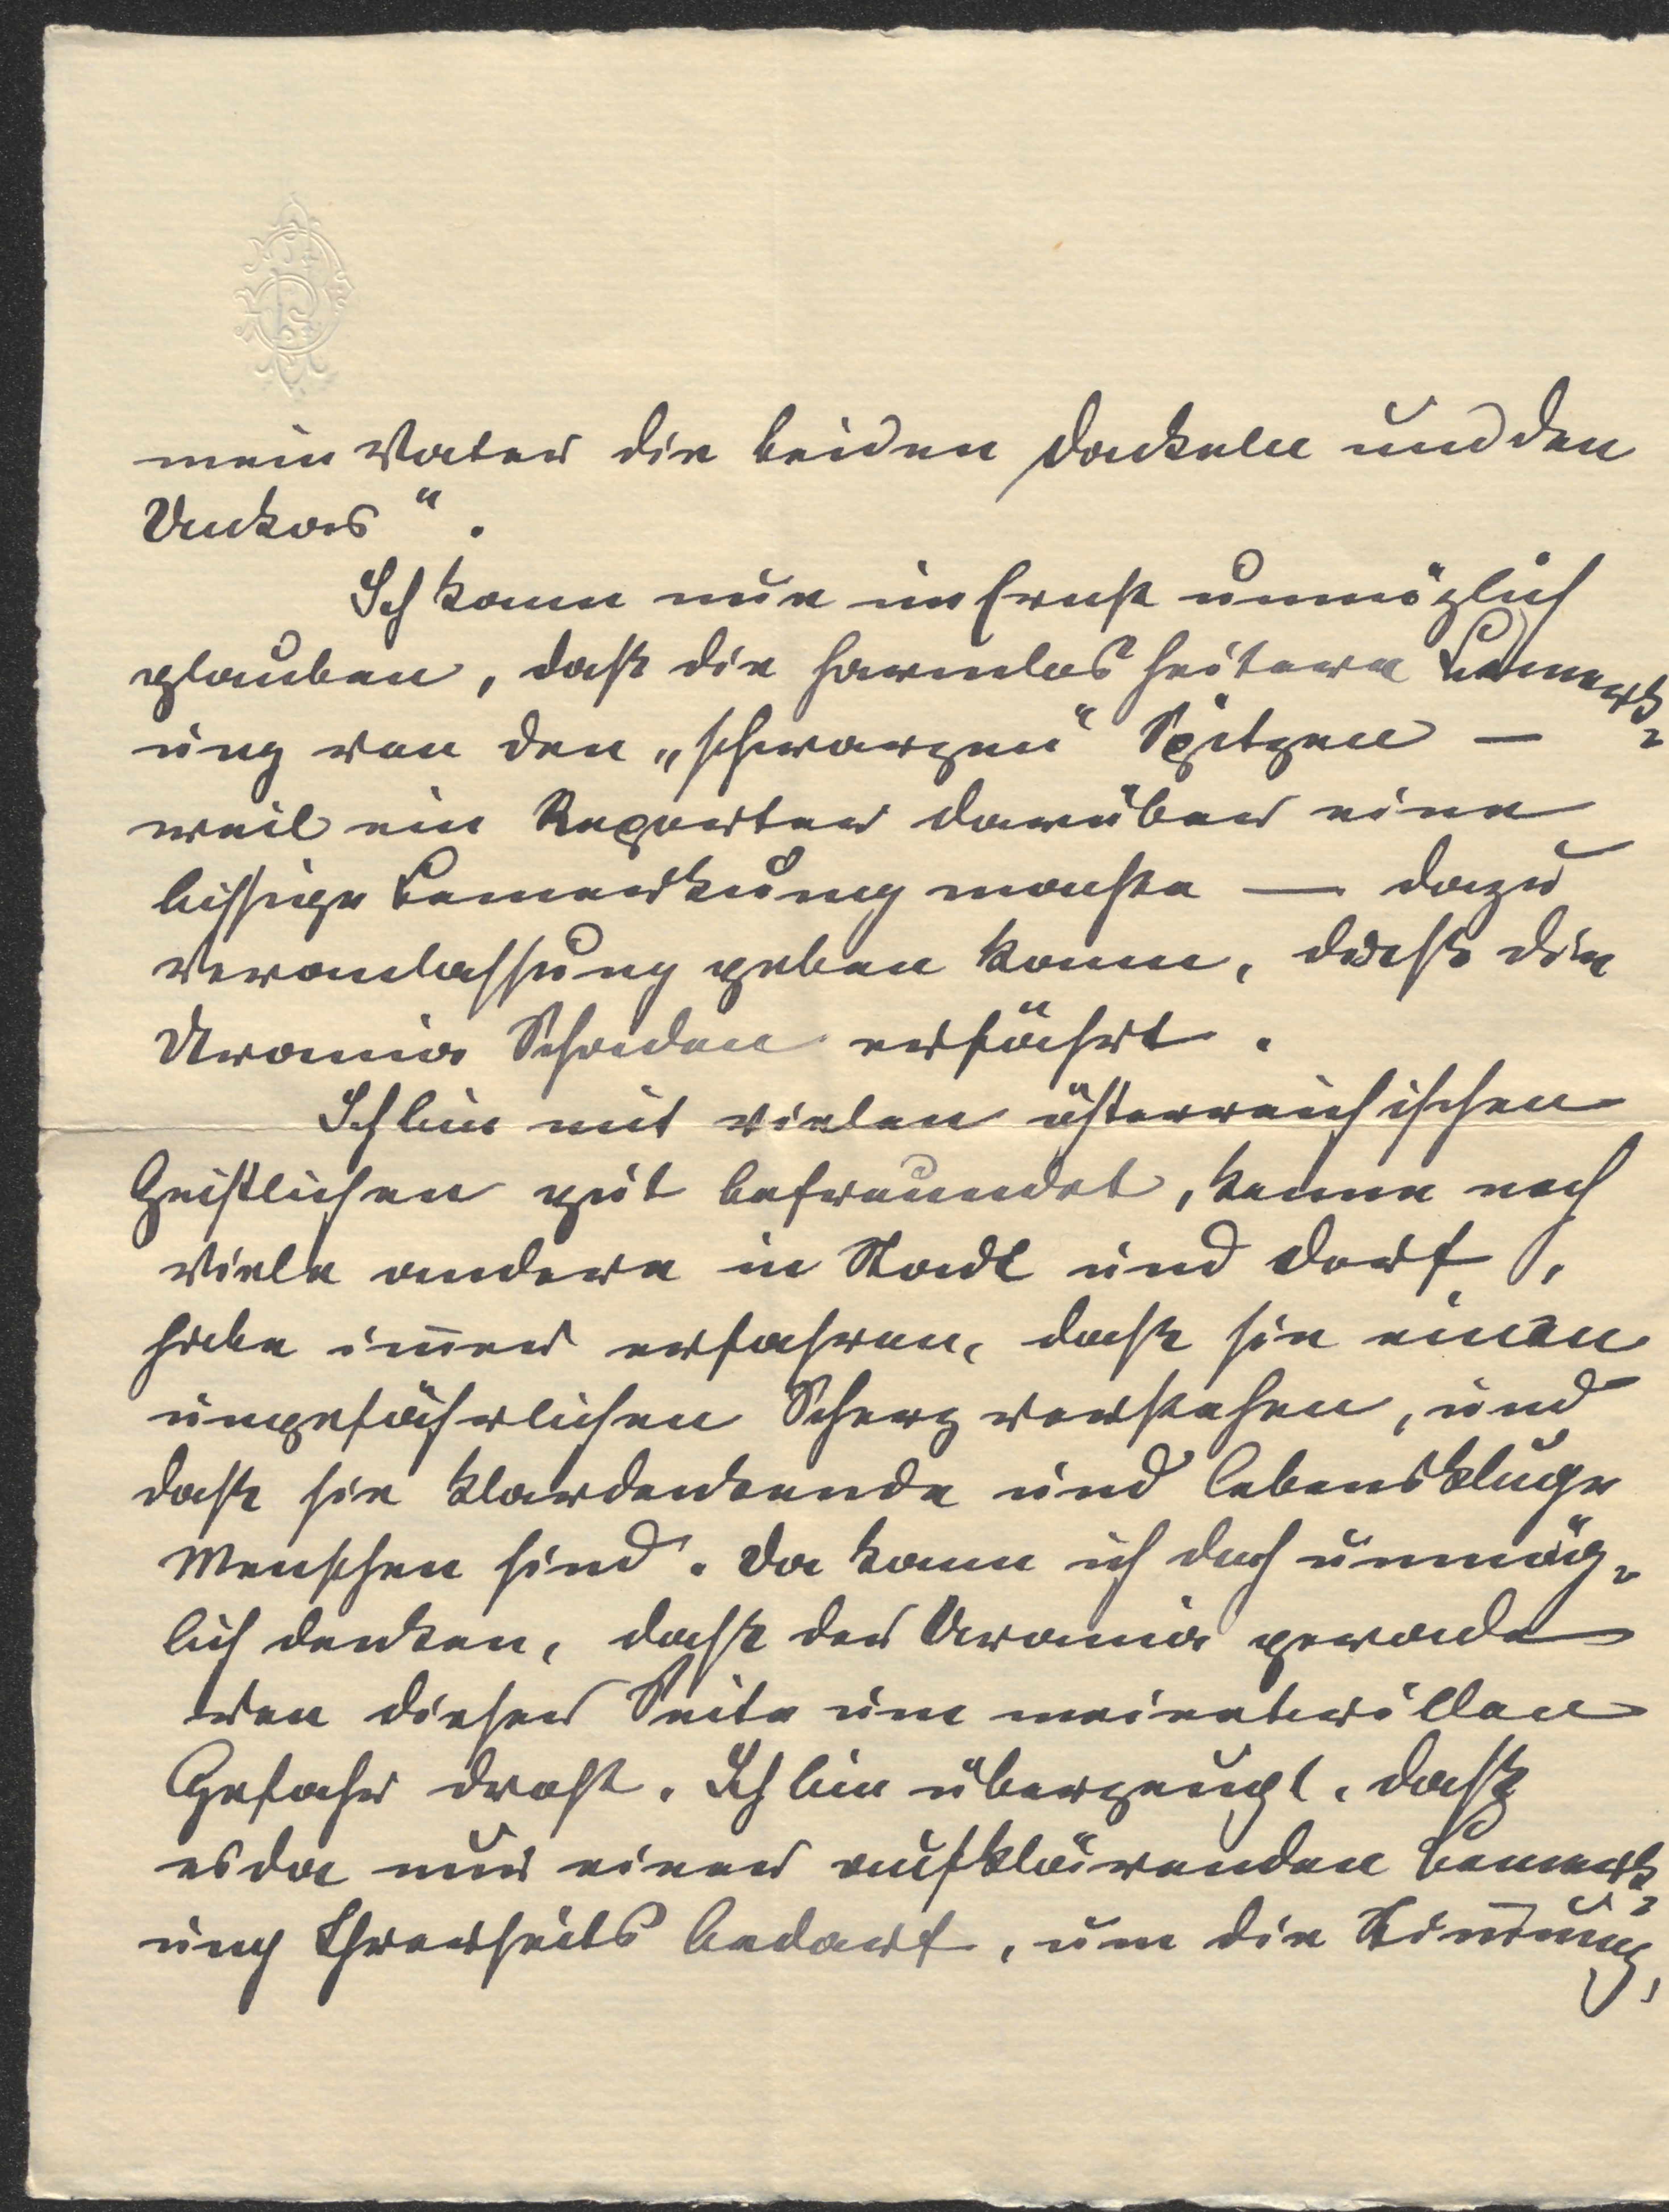 mein Vater die beiden Dackeln und den
Unkas“.
Ich kann nun im Ernst unmöglich
glauben, dass die harmlos heitere Bemerk-
ung von den „schwarzen“ Spitzen —
weil ein Reporter darüber eine
bissige Bemerkung machte — dazu
Veranlassung geben kann, dass die
Urania Schaden erfährt.
Ich bin mit vielen österreichischen
Geistlichen gut befreundet, kenne noch
viele andere in Stadt und Dorf,
habe im̅er erfahren, dass sie einen
ungefährlichen Scherz verstehen, und
dass sie klardenkende und lebenskluge
Menschen sind. Da kann ich doch unmög-
lich denken, dass der Urania gerade
von dieser Seite um meinetwillen
Gefahr droht. Ich bin überzeugt, dass
es da nur einer aufklärenden Bemerk-
ung Ihrerseits bedarf, um die Stim̅ung,